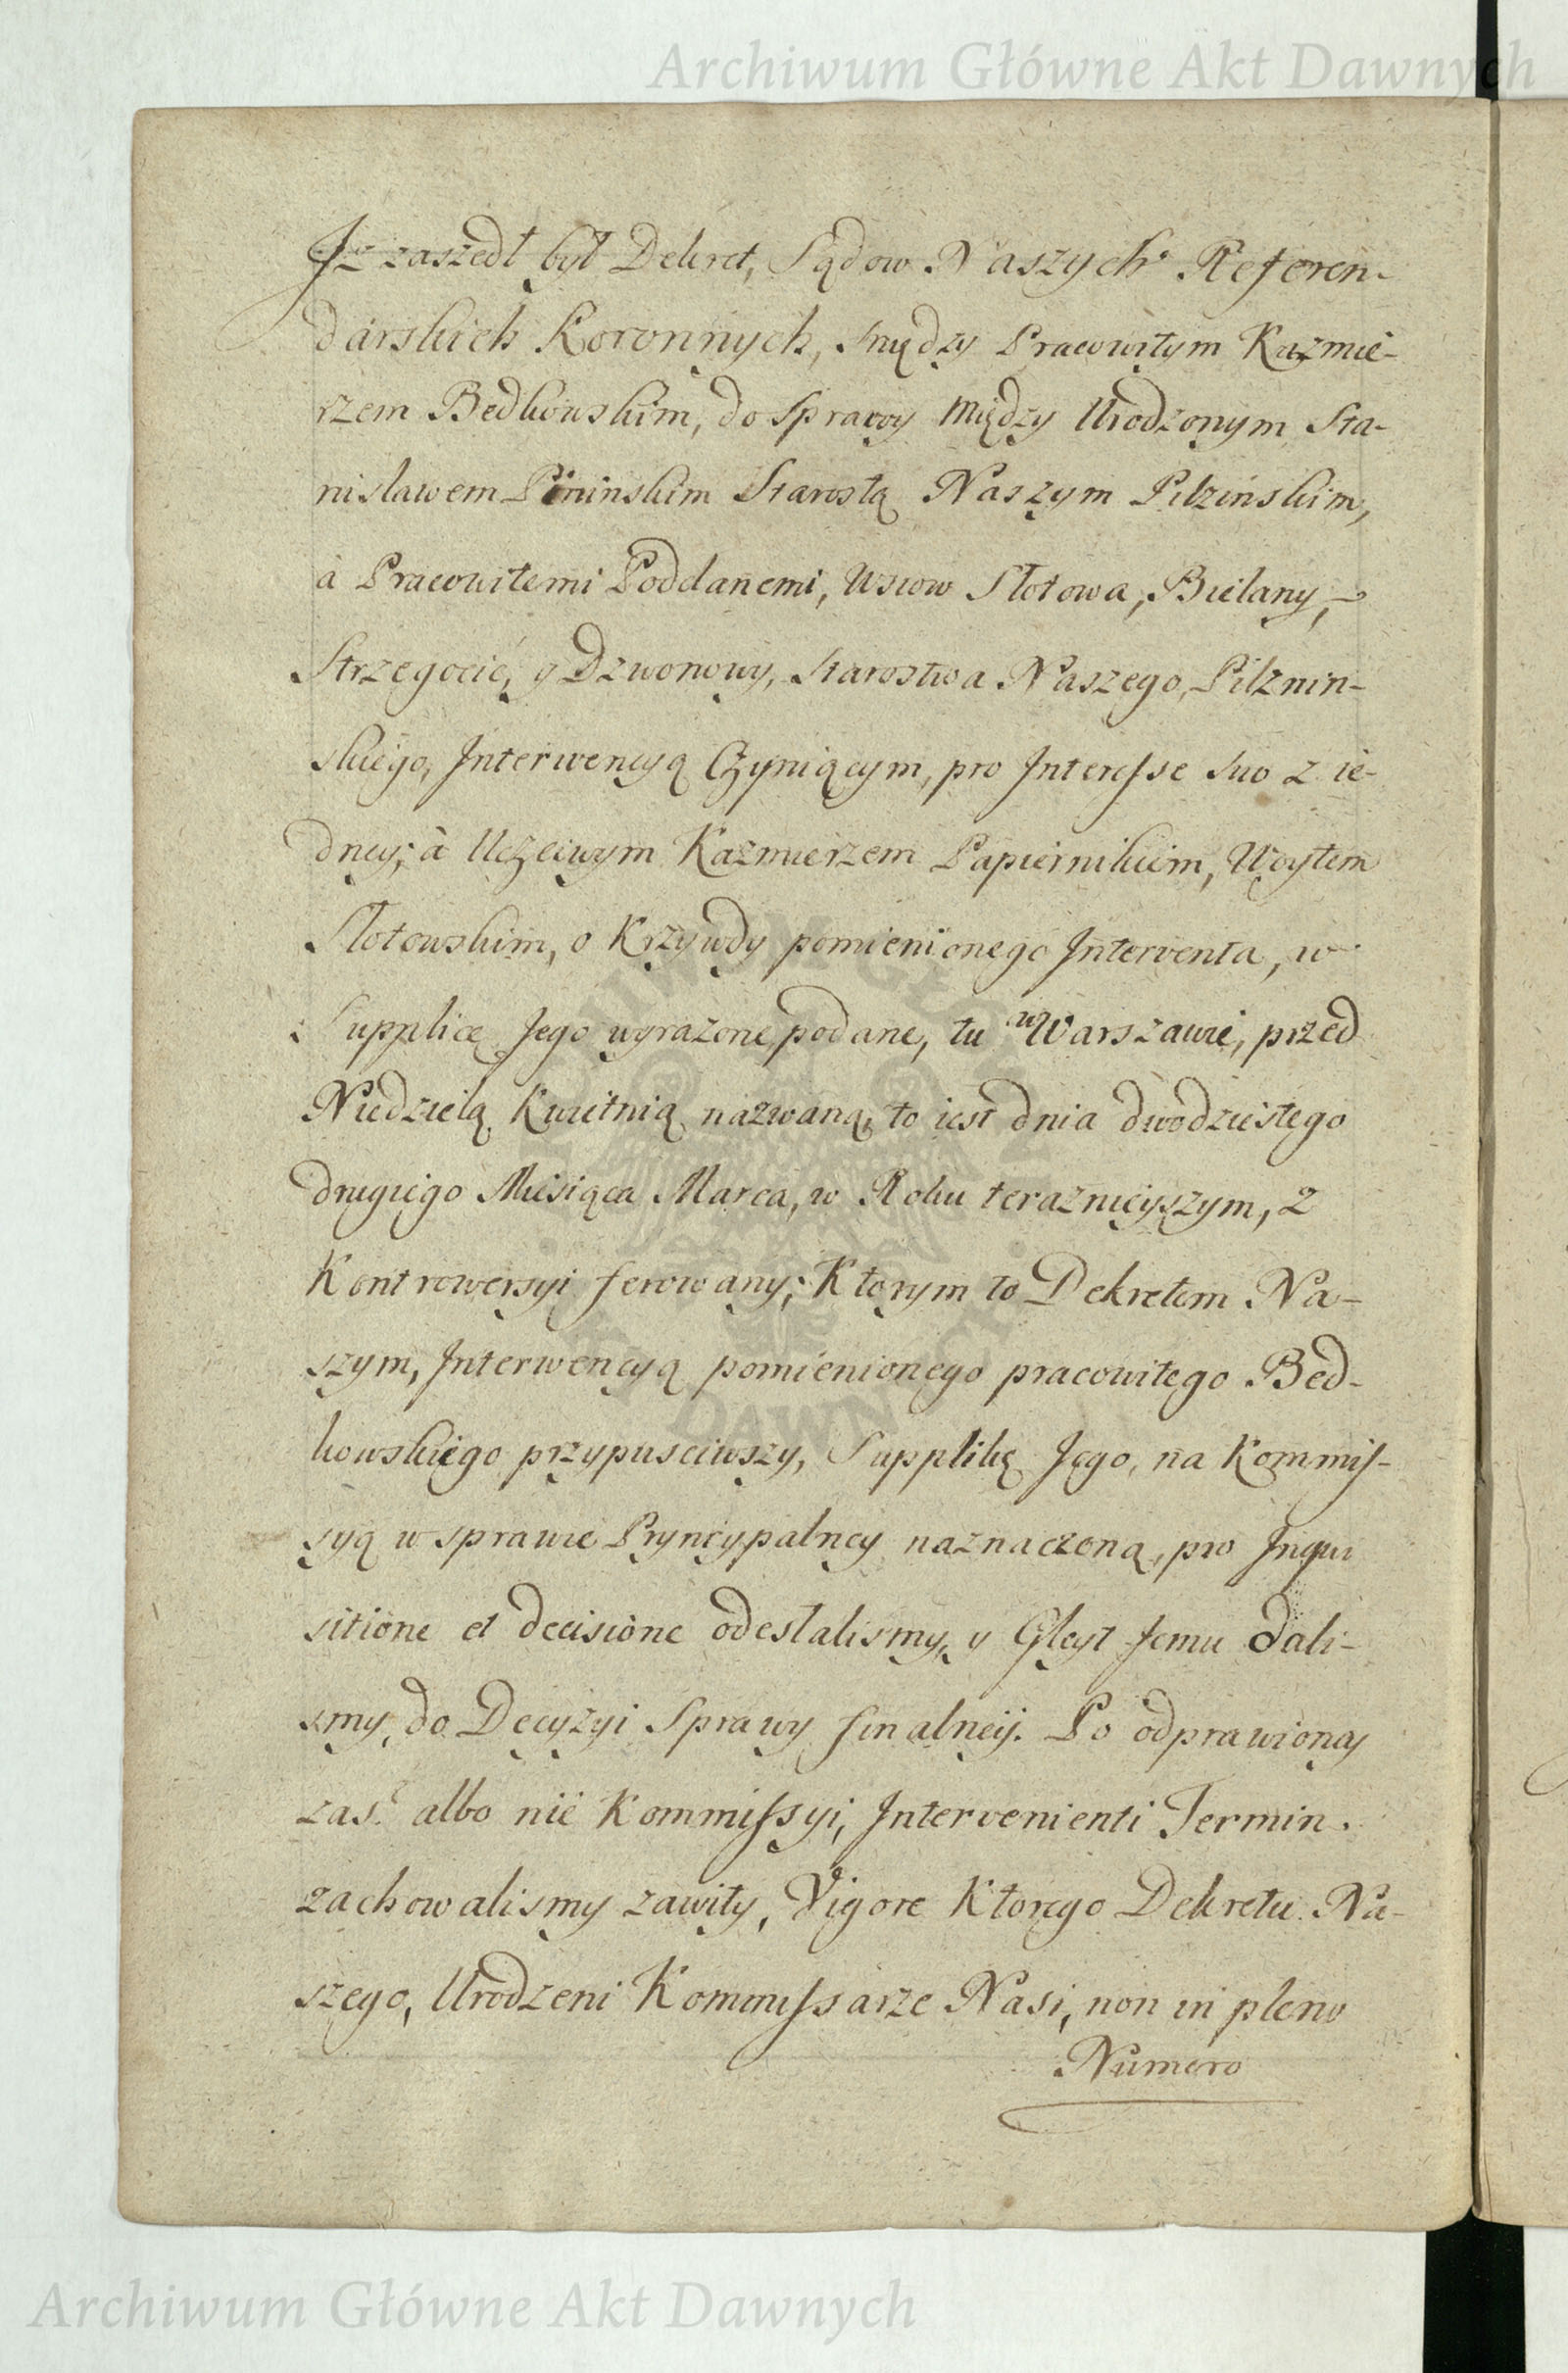 Archiwum Główne Akt Dawnych
Iż zaszedł był Dekret, Sądow Naszych Referen-
darskich Koronnych, między Pracowitym Kazmie-
rzem Bedkowskim, do Sprawy między Urodzonym Sta-
nisławem Pininskim Starostą Naszym Pilzińskim,
à Pracowitemi Poddanemi, Wsiow Słotowa, Bielany,
Strzegocic, y Dzwonowy, Starostwa Naszego, Pilznin-
skiego, Interwencyą Czyniącym, pro Interesse suo z ie-
dney; à Uczciwym Kazmierzem Papiernikiem, Woytem
Słotowskim, o Krzywdy pomienionego Interventa, w
Supplice Jego wyrazone, podane, tu w Warszawie, przed
Niedzielą Kwietnią nazwaną, to iest dnia dwodziestego
drugiego Miesiąca Marca, w Roku teraznieyszym, z
Kontrowersyi ferowany; Ktorym to Dekretem Na-
szym, Interwencyą pomienionego pracowitego Bed-
kowskiego przypusciwszy, Supplikę Jego, na Kommis-
syą w sprawie Pryncypalney naznaczoną, pro Inqui
sitione et decisione odesłalismy, y Gleyt Jemu dali-
smy, do Decyzyi Sprawy finalneij. Po odprawioney
zas albo nie Kommissyi, Intervenienti Termin.
zachowalismy zawity, Vigore Ktorego Dekretu Na-
szego, Urodzeni Kommissarze Nasi, non in pleno
Numero
Archiwum Główne Akt Dawnych